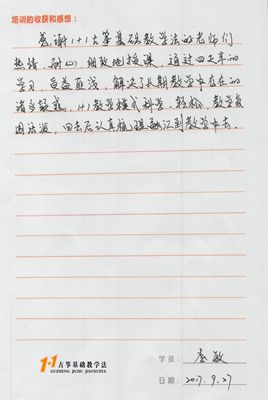 培训的收获和感想：
感谢1+1古筝基础教学法的老师们
热情、耐心、细致地授课，通过四天半的
学习，受益匪浅，解决了长期教学中存在的
诸多疑惑，1+1教学模式科学、轻松，教学氛
围活泼，回去后认真梳理融汇到教学中去。
学员：秦敏
1+1 古筝基础教学法
GUZHENG JICHU JIAOXUEFA
日期：2017.9.27